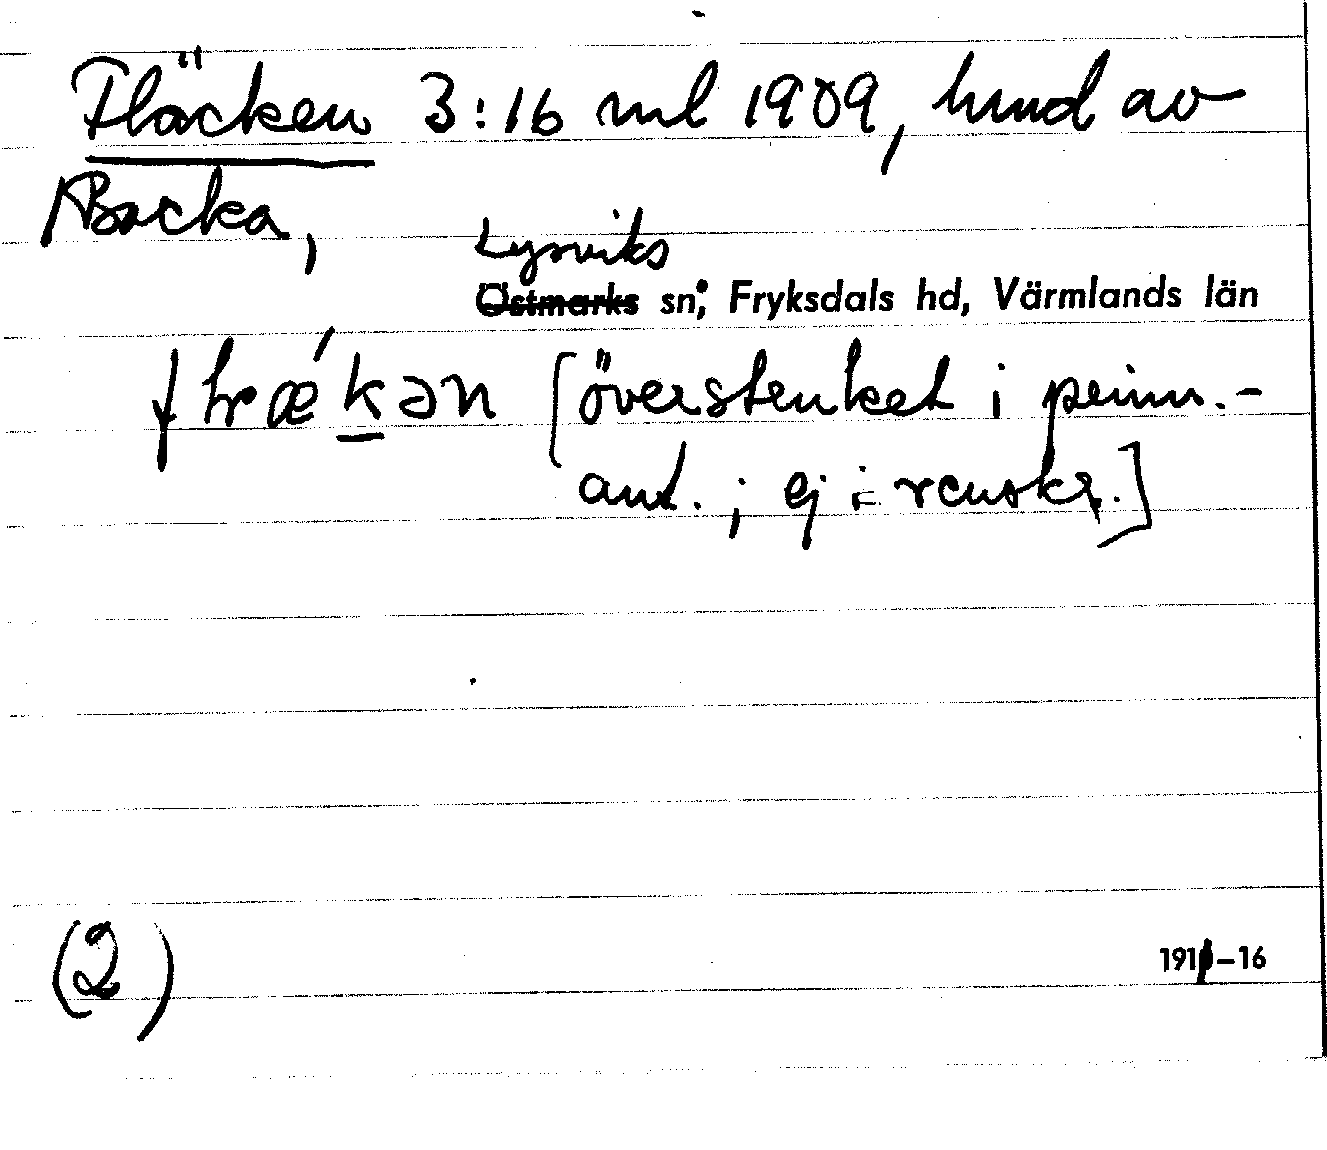 Fläcken 3:16 ml 1909, hmd av
Backa,
Lysviks
Östmarks sn; Fryksdals hd, Värmlands län
[överstruket i primr.-
ant.; ej i renskr.]
(2)
1911-16